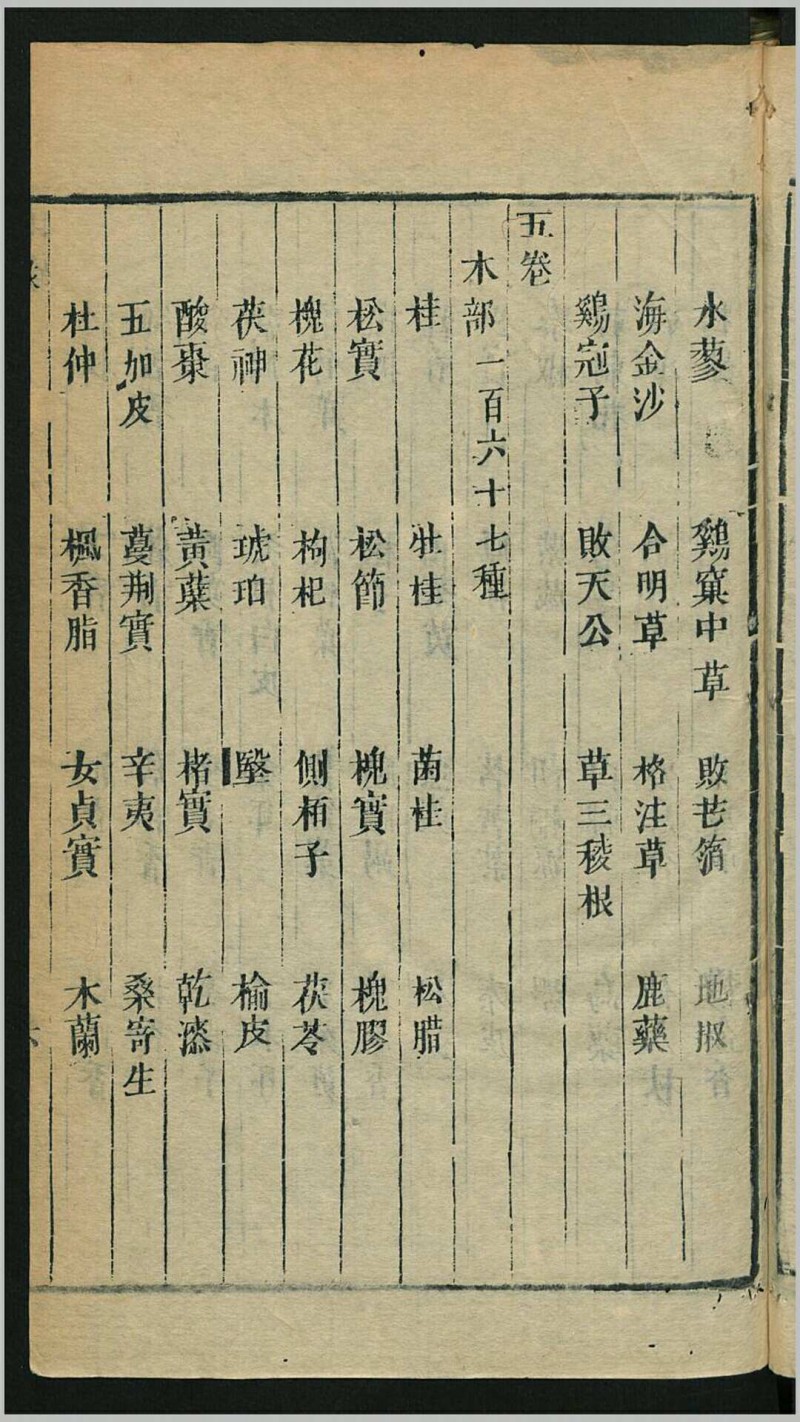 水蓼 鷄窠中草 敗芒箔 地椒
海金沙 合明草 格注草 鹿藥
鷄冠子 敗天公 草三稜根
五卷
木部一百六十七種
桂 牡桂 菌桂 松腊
松實 松節 槐實 槐膠
槐花 枸杞 側栢子 茯苓
茯神 琥珀 瑿 榆皮
酸棗 黃蘗 楮實 乾漆
五加皮 蔓荆實 辛夷 桑寄生
杜仲 楓香脂 女貞實 木蘭